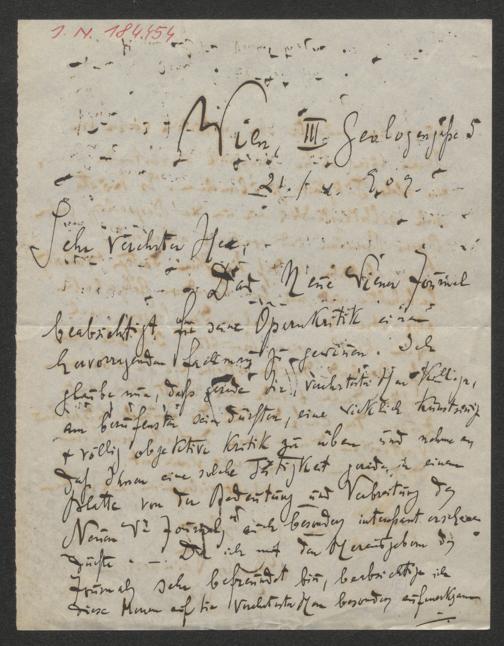 J. N. 184.454
Wien, III Geologengasse 5
21. / X. 909.
Sehr verehrter Herr,
Das Neue Wiener Journal
beabsichtigt für seine Opernkritik einen
hervorragenden Fachmann zu gewinnen. Ich
glaube nun, daß gerade Sie, verehrtester Herr
am berufensten sein dürften, eine wirklich künstlerische
& völlig objektive Kritik zu üben und nehme an
daß Ihnen eine solche Tätigkeit gerade in einem
Blatte von der Bedeutung und Verbreitung des
Neuen Wr Journals auch besonders interessant erscheinen
dürfte. — Da ich mit den Herausgebern des
Journals sehr befreundet bin, beabsichtige ich
diese Herren auf Sie verehrtester Herr besonders aufmerksam